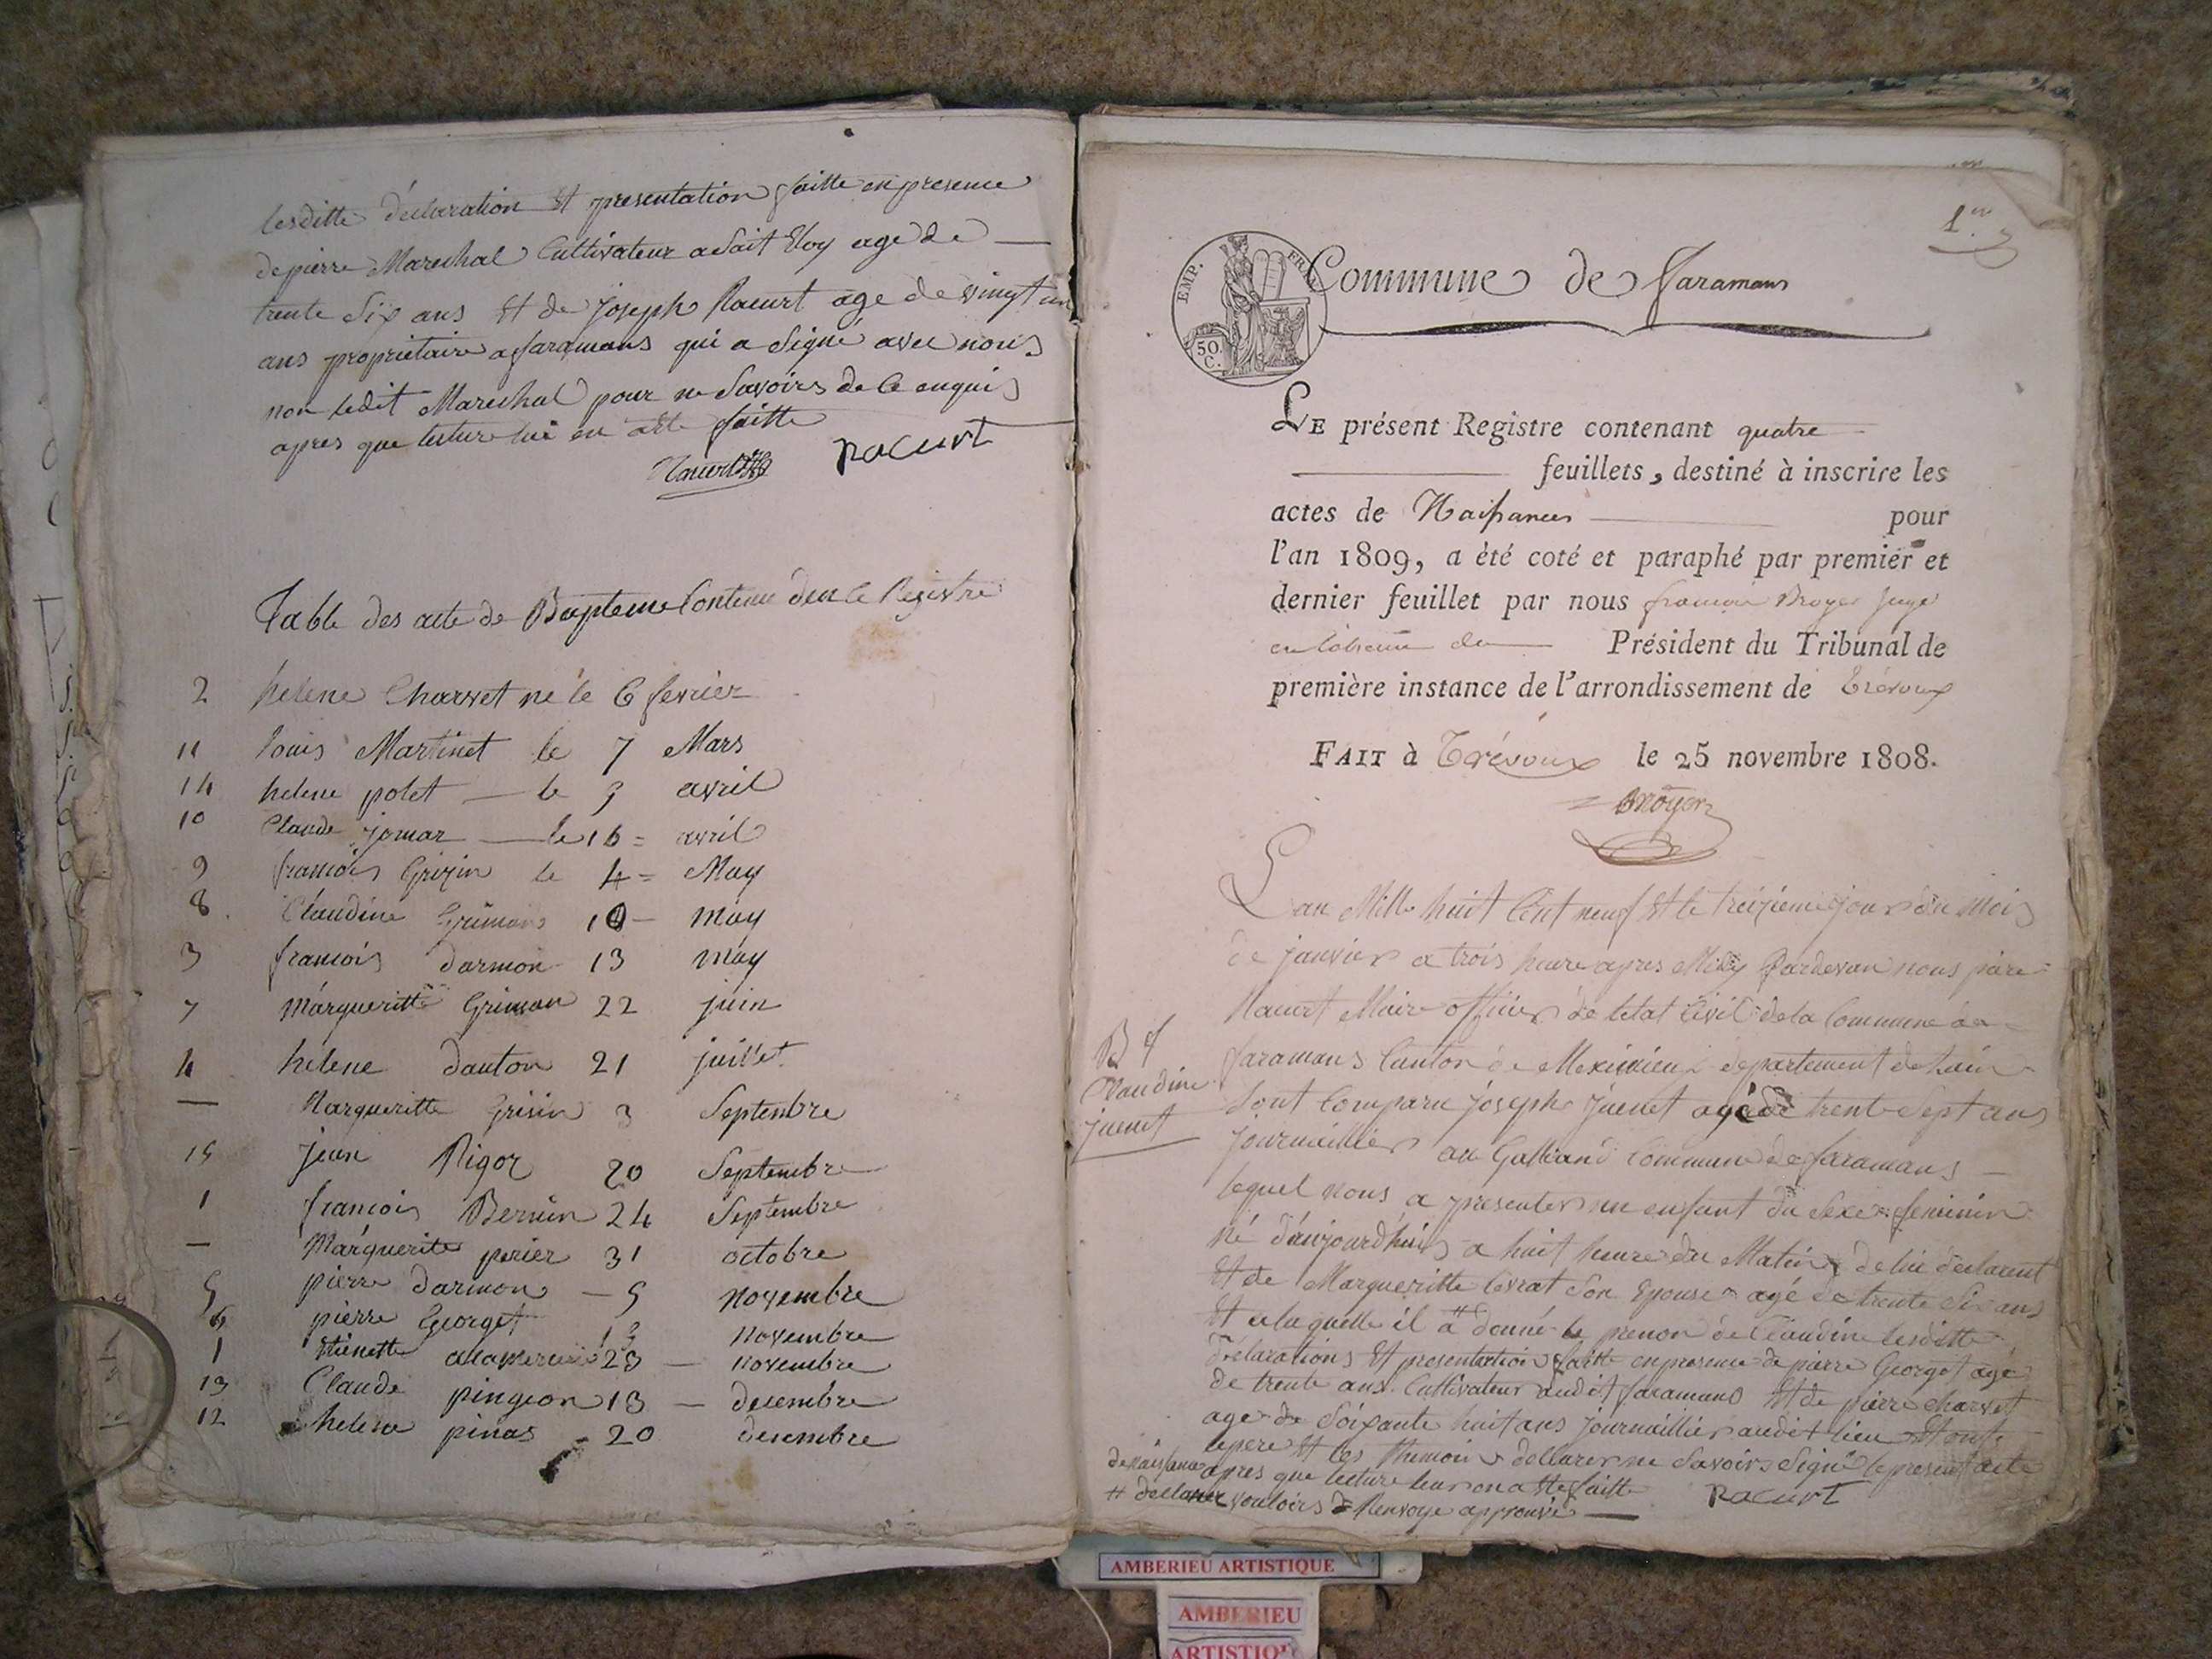 lesditte déclaration Et presentation faitte en presence
de pierre Mareshal Cultivateur a Saint Eloy age de
trente Six ans Et de joseph Racurt age de vingt un
ans propriétaire a faramans qui a Signé avec nous
non ledit Mareshal pour ne Savoirs de Ce enquis
apres que lecture lui en a été faitte
Racurt
Racurt
Table des acte de Bapteme Contenu den le Registre
2 helene Charvet né le 6 fevrier
11 louis Martinet le 7 Mars
14 helene polet le 3 avril
10 Claude jomar le 16 = avril
9 francois Grizin le 4 = May
8 Claudine Grimand 10 may
3 francois darmon 13 may
7 Margueritte Grimau 22 juin
4 helene danton 21 juillet
— Margueritte Grisin 3 Septenbre
15 jean Rigor 20 Septembre
1 francois Bernin 24 Septembre
— Marguerite perier 31 octobre
5 pierre darmon — 5 novembre
6 pierre Georget 13 novembre
1 Etienette 23 — novembre
13 Claude pingeon 13 — decembre
12 helene pinas 20 desembre
1er
EMP. FRAN.
50.
C.
Commune de faramans
LE présent Registre contenant quatre
feuillets, destiné à inscrire les
actes de Naissances pour
l'an 1809, a été coté et paraphé par premier et
dernier feuillet par nous francois Broyer juge
Président du Tribunal de
première instance de l'arrondissement de Trévoux
FAIT à Trévoux le 25 novembre 1808.
Broyer
Lan Mille huit Cent neuf Et le treizieme jour du mois
de janvier a trois heure apres Midy Pardevan nous piere
Racurt Maire officier de letat Civil de la Commune de
faramans Canton de Meximieux departement de lain
Sont Comparu joseph juenet agé de trente Sept ans
journaillier au Galland Commune de faramans
B f
Claudine
juenet
lequel nous a presenter un enfant du Sexe feminin
né d'aujourd'huis a huit heure du Matin de lui déclarent
Et de Margueritte Cevrat Son Epouse agé de trente Six ans
Et a laquelle il a # donné le prenon de Claudine lesditte
Déclarations Et presentation faitte en presence de pierre Georget agé
de trente ans Cultivateur audit faramans Et de pierre charvet
age de Soixante huit ans journaillier audit lieu Et ont
le pere Et les themoins dellarer ne Savoirs Signé le present acte
de naissance apres que lecture leur en a été faitte Racurt
# dellarer vouloirs Renvoye approuvé
AMBERIEU ARTISTIQUE
AMBERIEU
ARTISTIQU